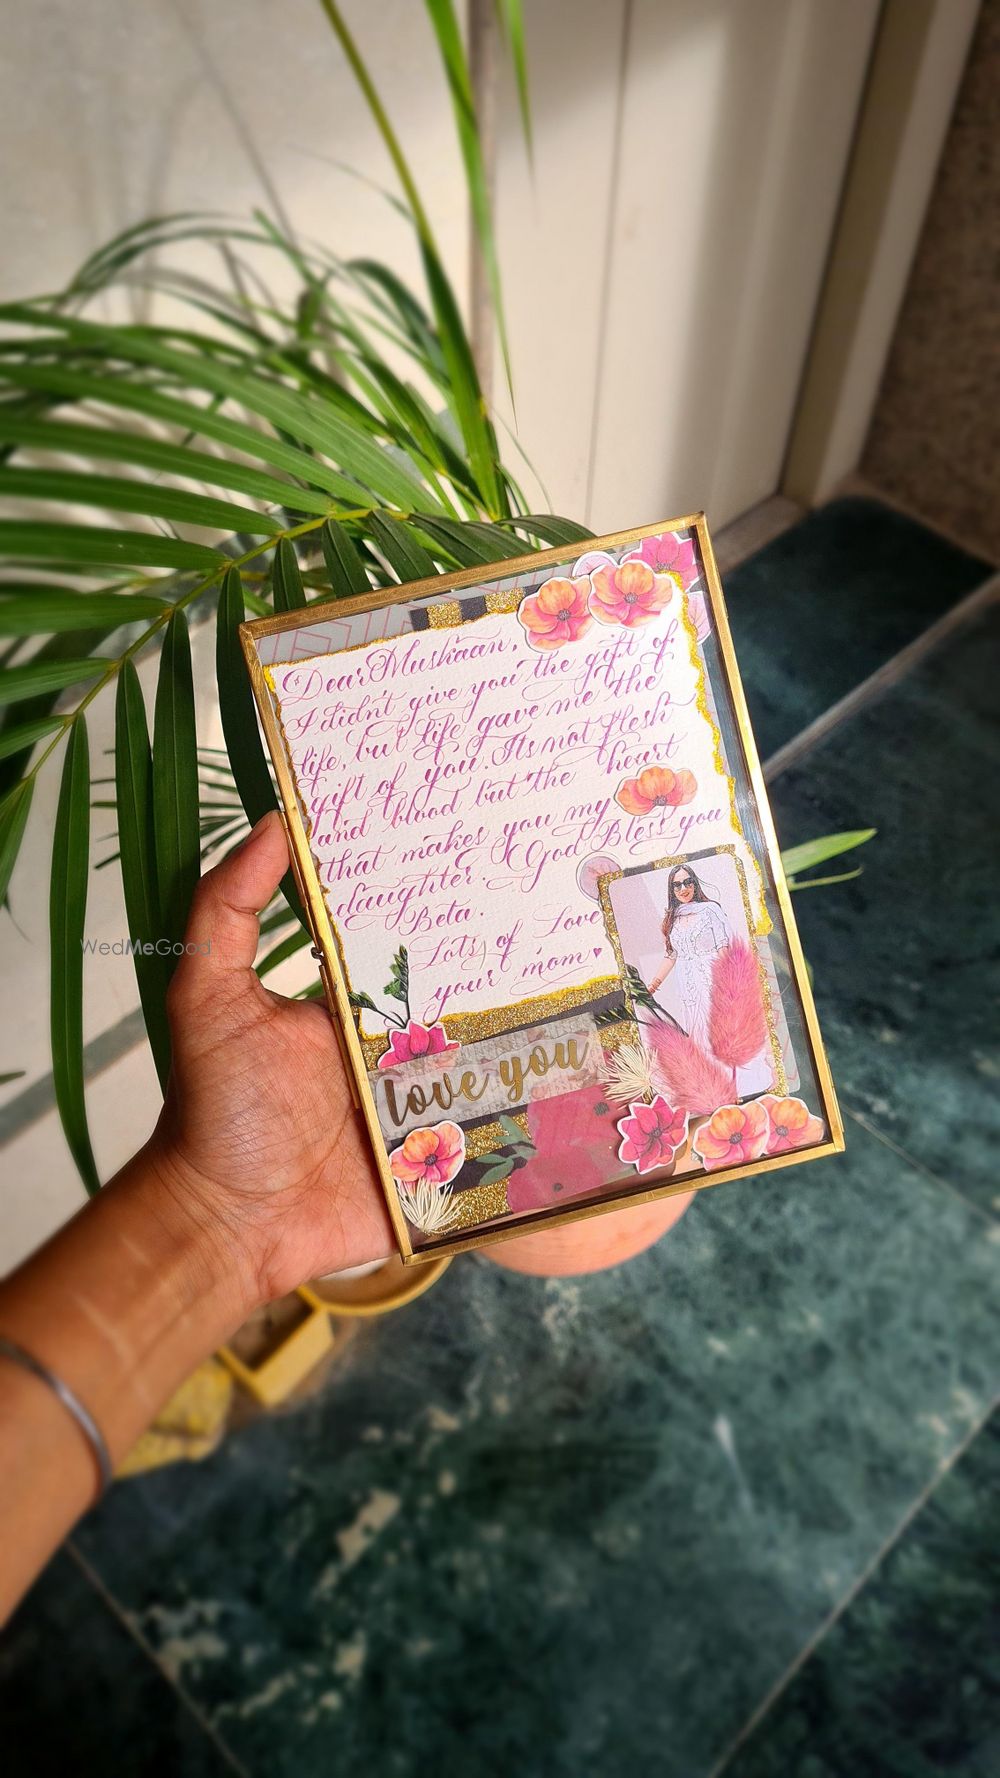 Dear Muskaan,
I didn't give you the gift of
life, but life gave me the
gift of you. Its not flesh
and blood but the heart
that makes you my
daughter. God Bless you
Beta.
Lots of Love
your mom♥
love you
WedMeGood